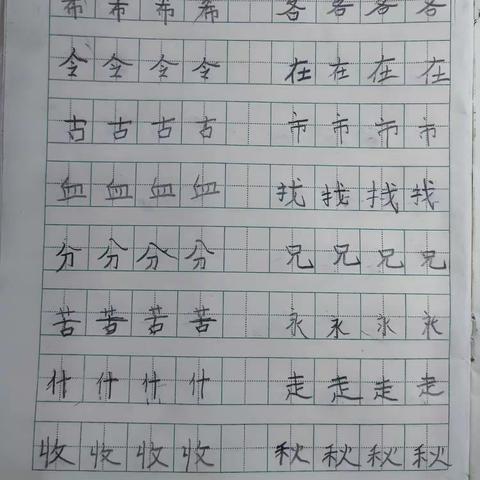 希希希希 各各各各
令令令令 在在在在
古古古古 市市市市
血血血血 找找找找
分分分分 兄兄兄兄
苦苦苦苦 永永永永
什什什什 走走走走
收收收收 秋秋秋秋